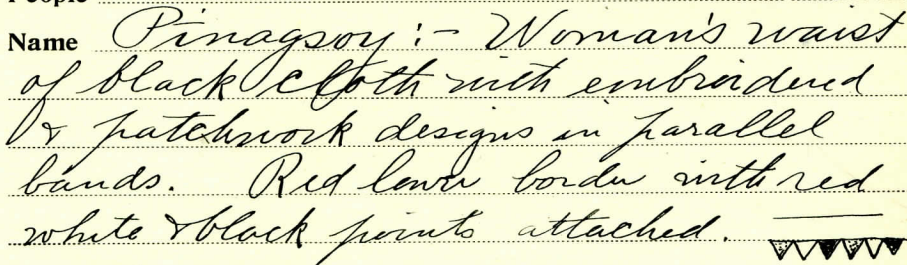 Name Pinagsoy :- Woman's waist
of black cloth with embroidered
& patchwork designs in parallel
bands. Red lower border with red
white & black points attached.